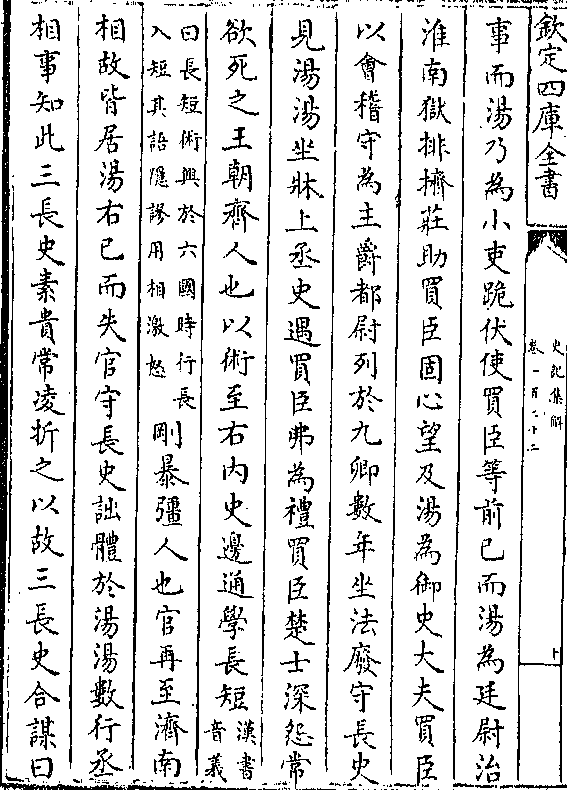 欽定四庫全書
史記集解
卷一百二十二
事而湯乃為小吏跪伏使買臣等前已而湯為廷尉治
淮南獄排擠莊助買臣固心望及湯為御史大夫買臣
以㑹稽守為主爵都尉列於九卿數年坐法廢守長史
見湯湯坐牀上丞史遇買臣弗為禮買臣楚士深怨常
欲死之王朝齊人也以術至右内史邊通學長短漢書音義
曰長短術興於六國時行長入短其語隱謬用相激怒剛暴彊人也官再至濟南
相故皆居湯右已而失官守長史詘體於湯湯數行丞
相事知此三長史素貴常凌折之以故三長史合謀曰